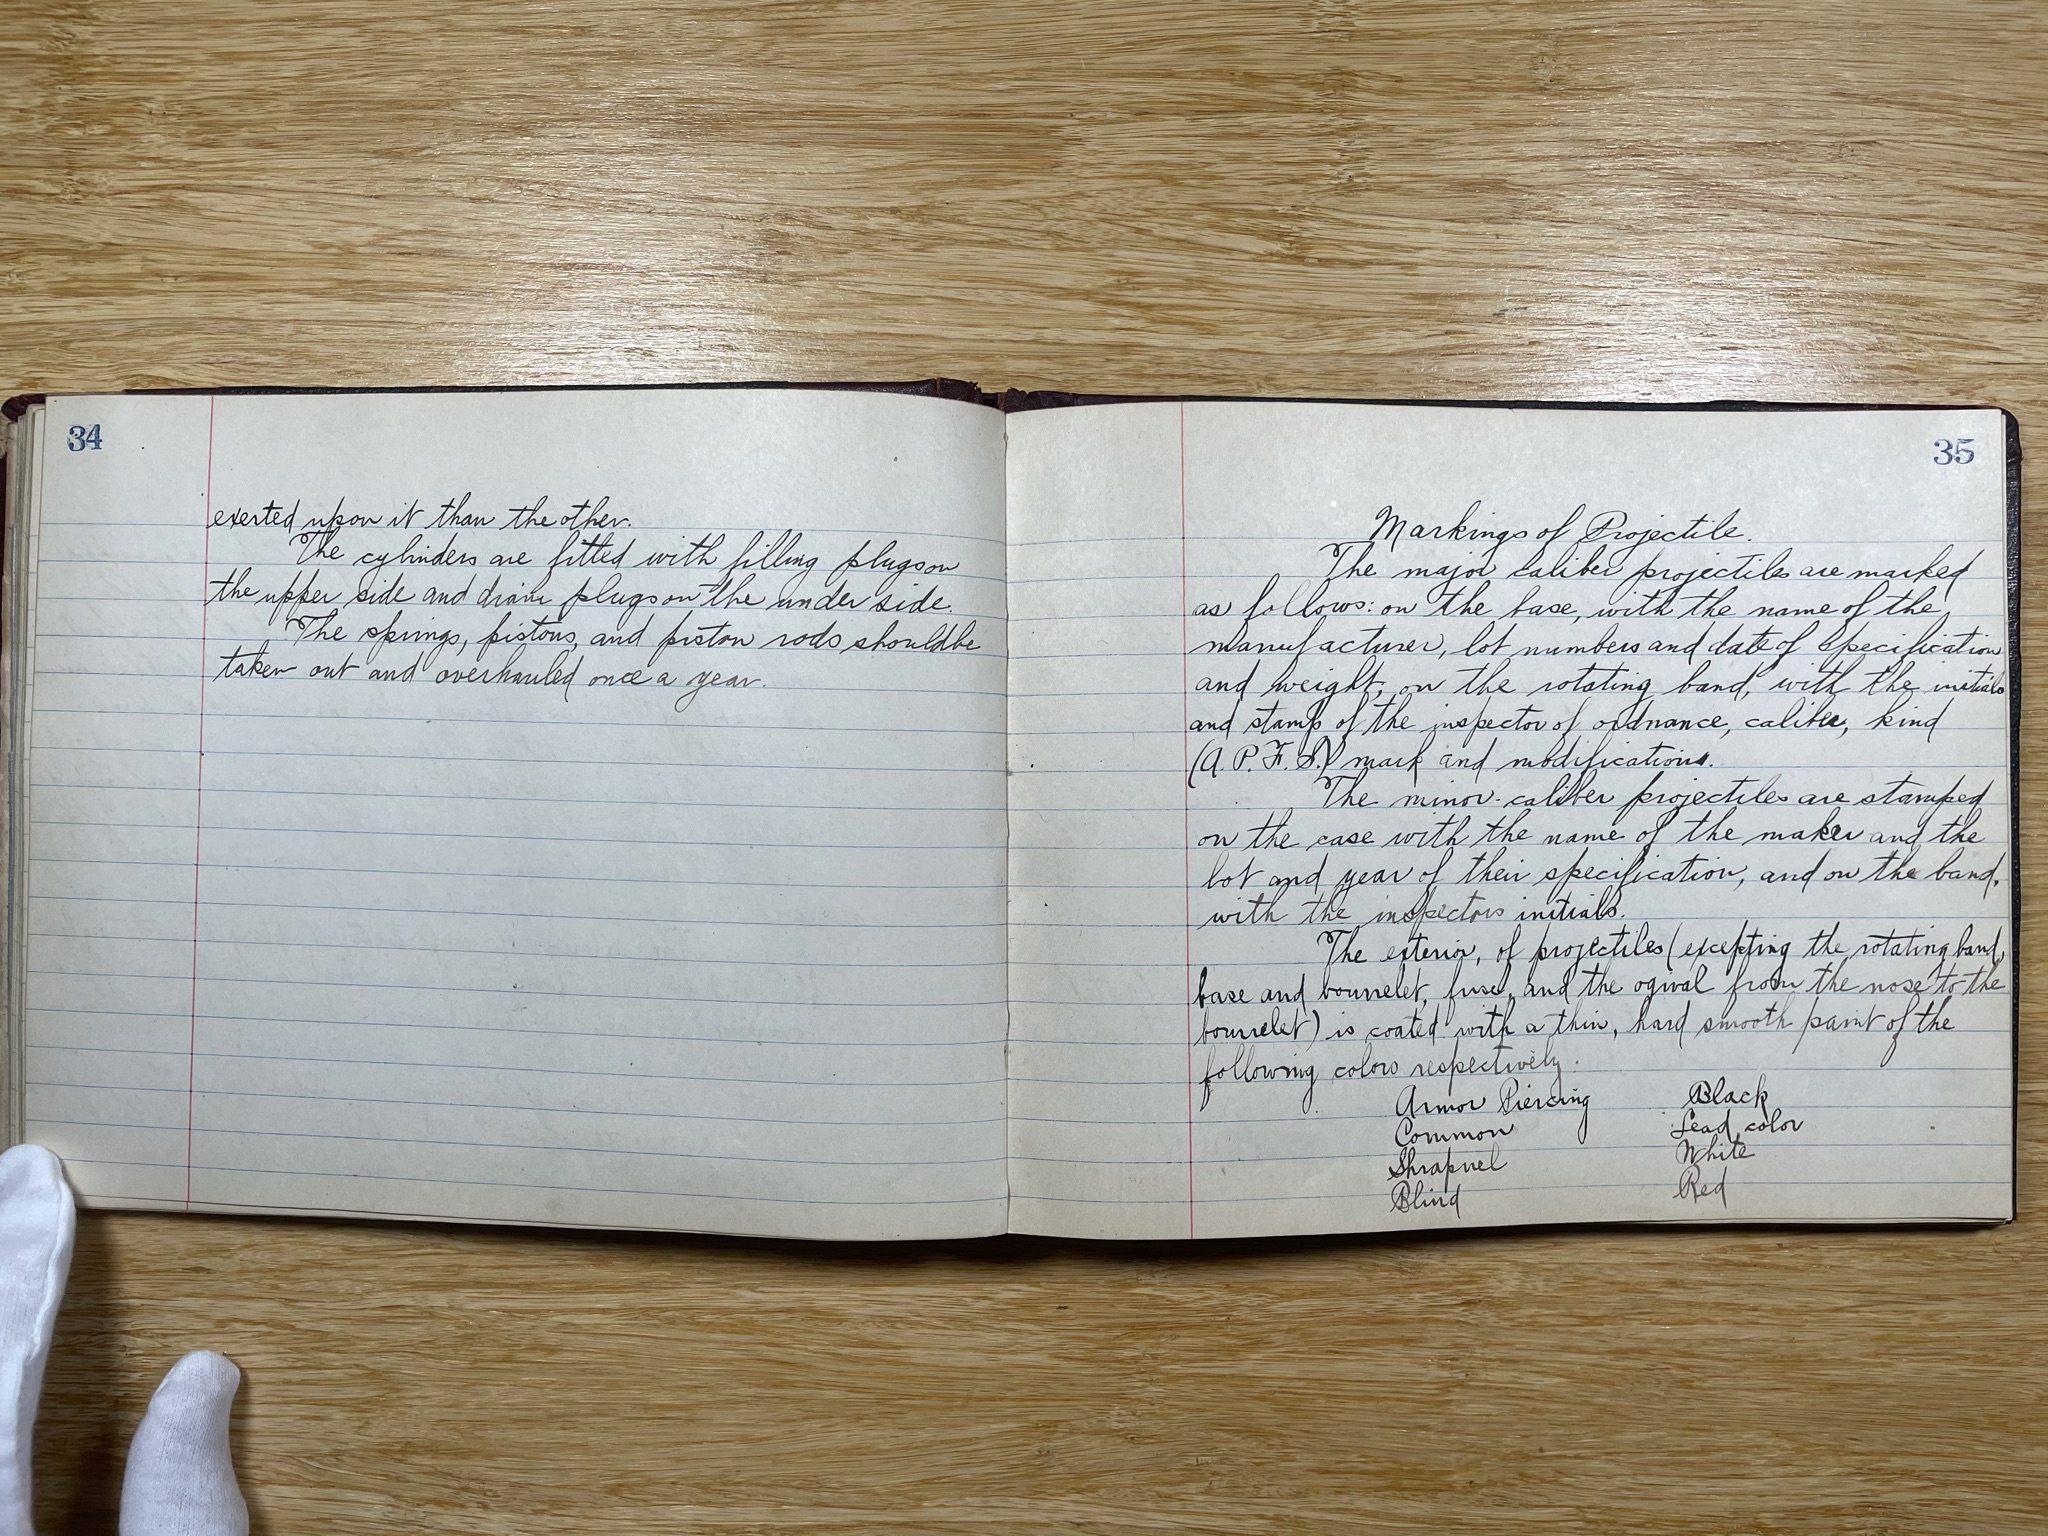 34
exerted upon it than the other.
The cylinders are fitted with filling plugs on
the upper side and drain plugs on the under side.
The springs, pistons, and piston rods should be
taken out and overhauled once a year.
35
Markings of Projectile.
The major caliber projectiles are marked
as follows: on the base, with the name of the
manufacturer, lot numbers and date of specification
and weight; on the rotating band, with the initials
and stamp of the inspector of ordnance, caliber, kind
(A. P. F. S.) mark and modifications.
The minor-caliber projectiles are stamped
on the case with the name of the maker and the
lot and year of their specification, and on the band,
with the inspectors initials.
The exterior, of projectiles (excepting the rotating band,
base and bourrelet, fuse, and the ogival from the nose to the
bourrelet) is coated with a thin, hard smooth paint of the
following colors respectively:
Armor Piercing Black
Common Lead color
Shrapnel White
Blind Red